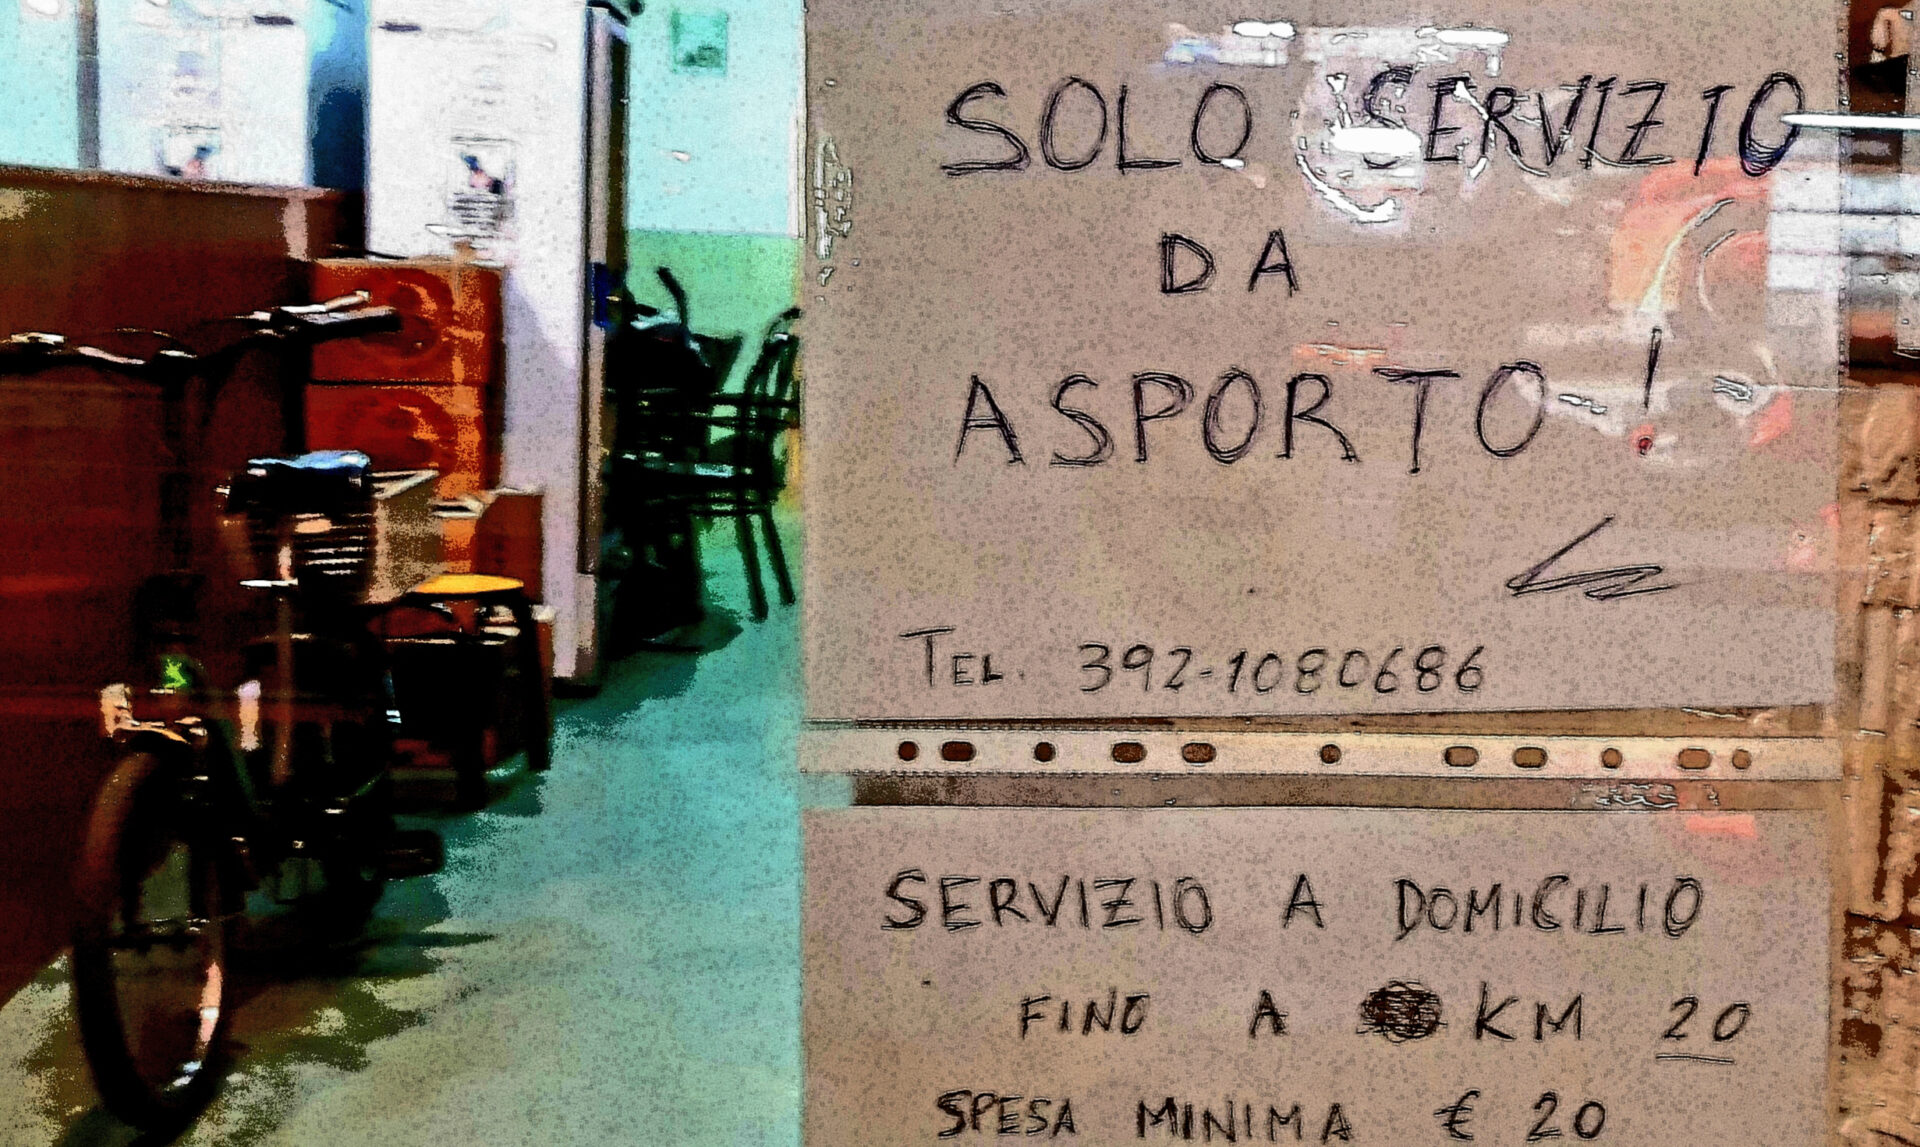 SOLO SERVIZIO
DA
ASPORTO !
TEL. 392-1080686
SERVIZIO A DOMICILIO
FINO A KM 20
SPESA MINIMA € 20